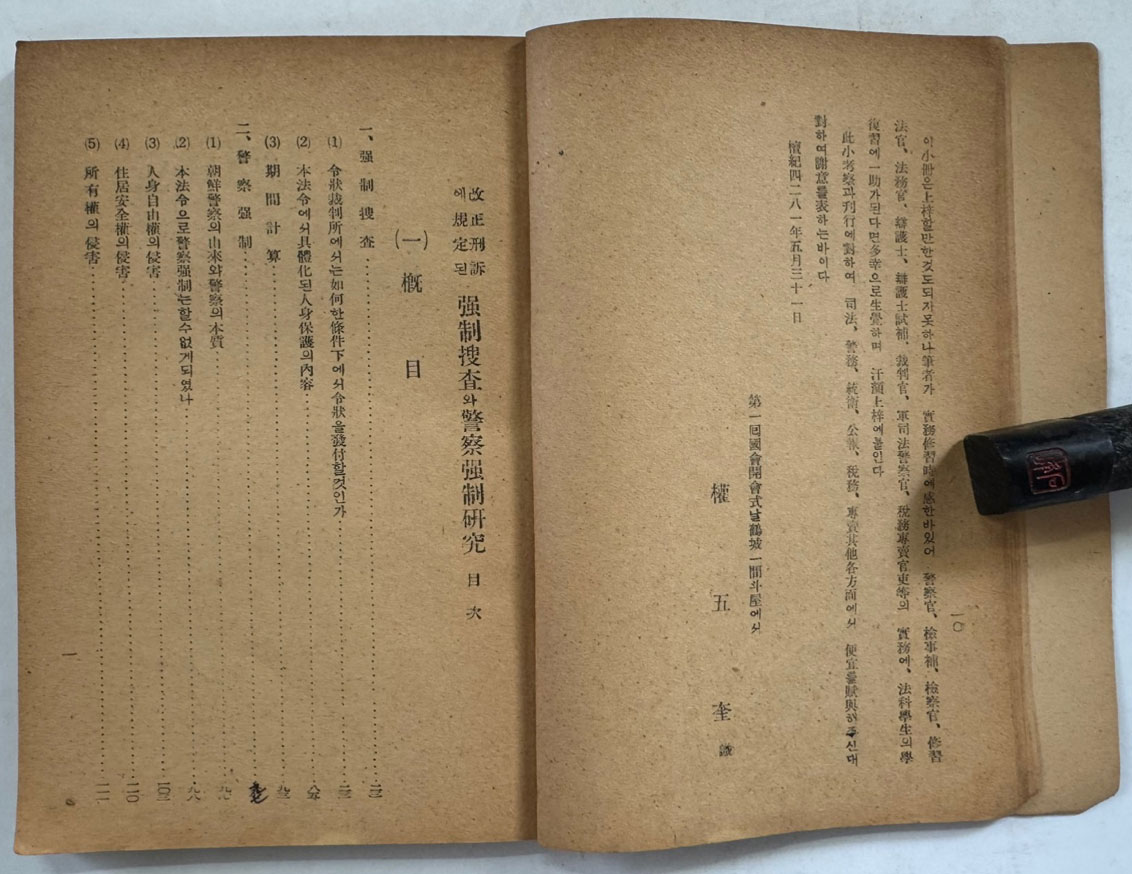 이小冊은上梓할만한것도되지못하나筆者가 實務修習時에感한바있어 警察官、檢事補、檢察官、修習
法官、法務官、辯護士、辯護士試補、裁判官、軍司法警察官、稅務專賣官吏等의 實務에、法科學生의學
復習에一助가된다면多幸으로生覺하며 汗顔上梓에붙인다
此小考察과刊行에對하여 司法、警務、統衛、公報、稅務、專賣其他各方面에서 便宜를賦與해주신대
對하여謝意를表하는바이다
檀紀四二八一年五月三十一日
第一回國會開會式날鶴城一間斗屋에서
權五奎 識
一〇
改正刑訴에規定된 强制搜査와警察强制硏究 目次
(一) 槪目
一、强制搜査
(1) 令狀裁判所에서는如何한條件下에서令狀을發付할것인가
(2) 本法令에서具體化된人身保護의內容
(3) 期間計算
二、警察强制
(1) 朝鮮警察의由來와警察의本質
(2) 本法令으로警察强制는할수없게되였나
(3) 人身自由權의侵害
(4) 住居安全權의侵害
(5) 所有權의侵害
一